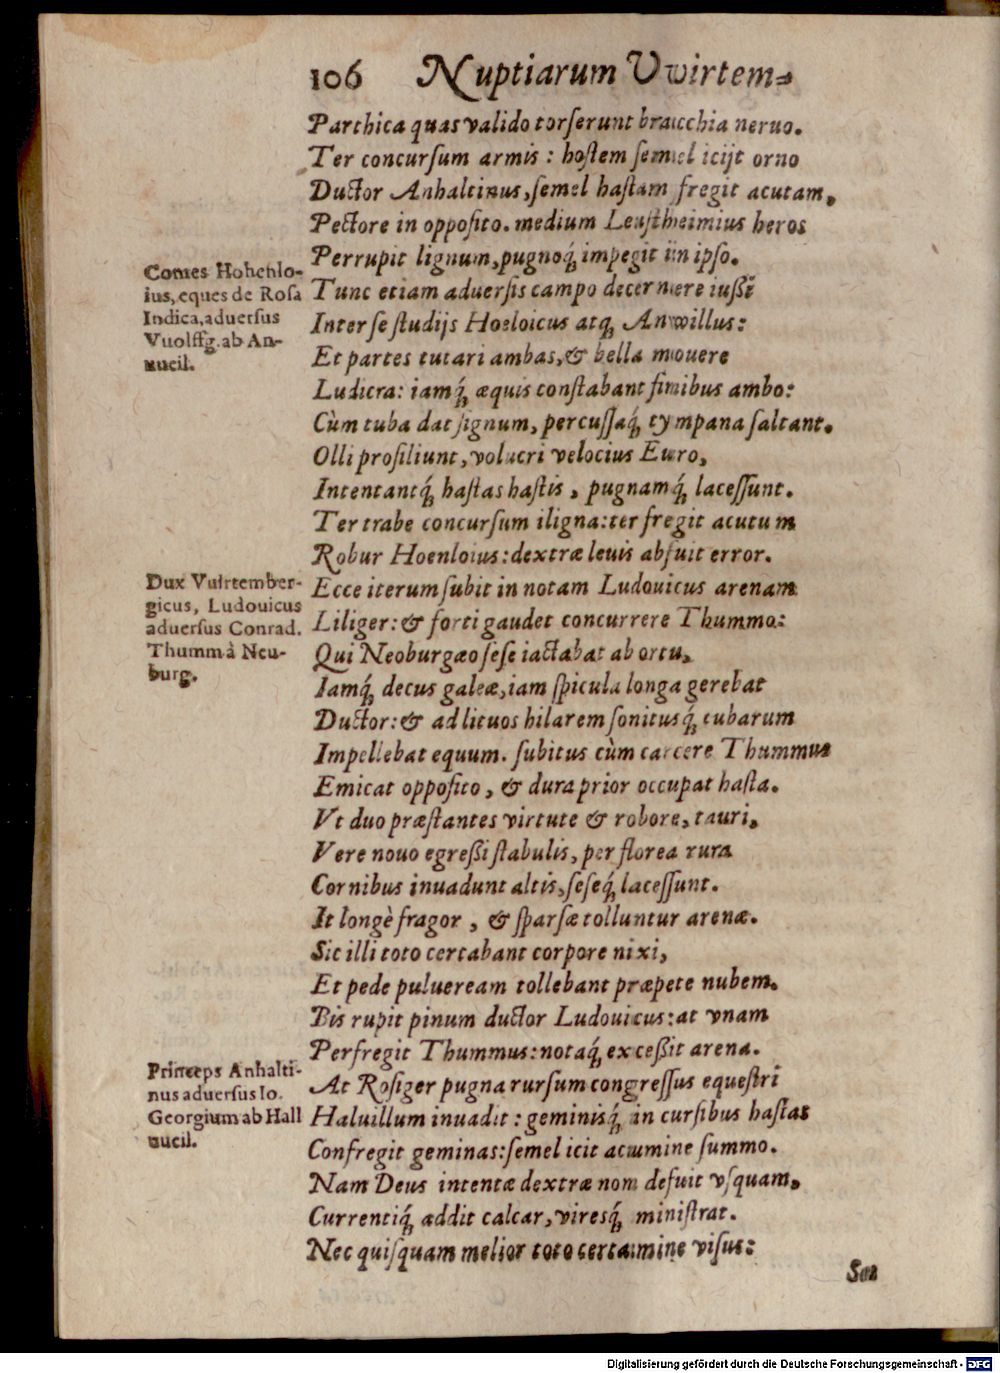 106 Nuptiarum Vvvirtem-
Parthica quas valido torserunt bracchia neruo.
Ter concursum armis: hostem semel icijt orno
Ductor Anhaltinus, semel hastam fregit acutam,
Pectore in opposito. medium Leustheimius heros
Perrupit lignum, pugnoq́; impegit in ipso.
Comes Hohenlo-
ius, eques de Rosa
Indica, aduersus
Vuolffg. ab An-
uucil.
Tunc etiam aduersis campo decernere iußi
Inter se studijs Hoeloicus atq; Anwillus:
Et partes tutari ambas, & bella mouere
Ludicra: iamq́; æquis constabant finibus ambo:
Cùm tuba dat signum, percussaq́; tympana saltant.
Olli prosiliunt, volucri velocius Euro,
Intentantq́; hastas hastis, pugnamq́; lacessunt.
Ter trabe concursum iligna: ter fregit acutum
Robur Hoenloius: dextræ leuis abfuit error.
Dux Vuirtember-
gicus, Ludouicus
aduersus Conrad.
Thumm à Neu-
burg.
Ecce iterum subit in notam Ludouicus arenam
Liliger: & forti gaudet concurrere Thummo:
Qui Neoburgæo sese iactabat ab ortu,
Iamq́; decus galeæ, iam spicula longa gerebat
Ductor: & ad lituos hilarem sonitusq́; tubarum
Impellebat equum. subitus cùm carcere Thummus
Emicat opposito, & dura prior occupat hasta.
Vt duo præstantes virtute & robore, tauri,
Vere nouo egreßi stabulis, per florea rura
Cornibus inuadunt altis, seseq́; lacessunt.
It longè fragor, & sparsæ tolluntur arenæ.
Sic illi toto certabant corpore nixi,
Et pede puluream tollebant præpete nubem.
Bis rupit pinum ductor Ludouicus: at vnam
Perfregit Thummus: notaq́; exceßit arena.
Princeps Anhalti-
nus aduersus Io.
Georgium ab Hall
uucil.
At Rosiger pugna rursum congressus equestri
Haluillum inuadit: geminisq́; in cursibus hastas
Confregit geminas: semel icit acumine summo.
Nam Deus intentæ dextræ non defuit vsquam,
Currentiq́; addit calcar, viresq́; ministrat.
Nec quisquam melior toto certamine visus:
Digitalisierung gefördert durch die Deutsche Forschungsgemeinschaft - DFG